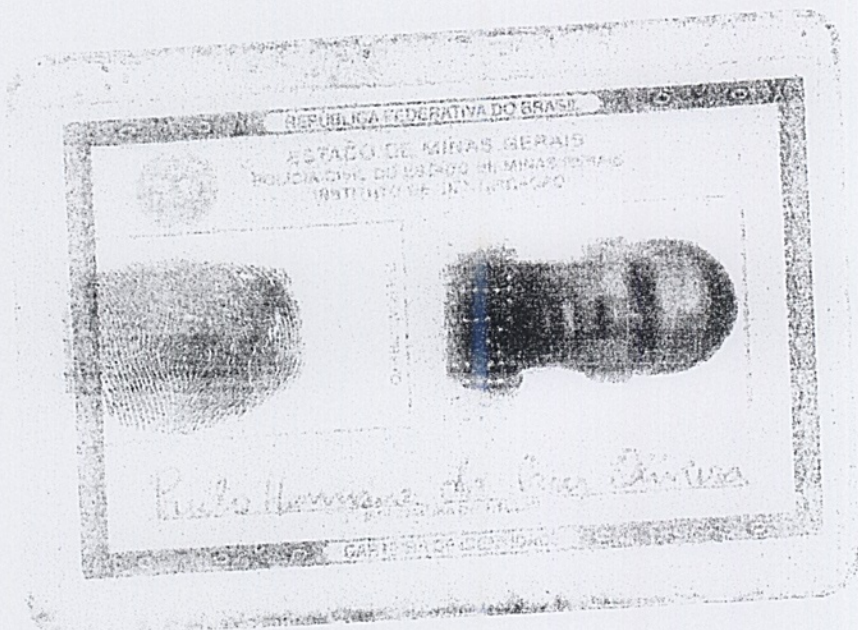 REPÚBLICA FEDERATIVA DO BRASIL
ESTADO DE MINAS GERAIS
POLÍCIA CIVIL DO ESTADO DE MINAS GERAIS
INSTITUTO DE IDENTIFICAÇÃO
Paulo Henrique da Oliveira
CARTEIRA DE IDENTIDADE